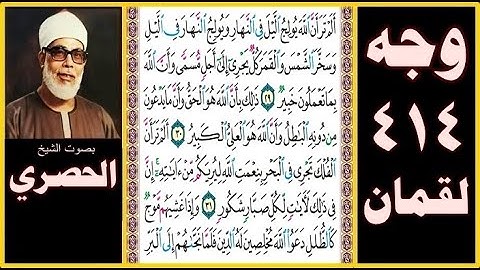 وجه
٤١٤
لقمان
أَلَمْ تَرَ أَنَّ اللَّهَ يُولِجُ الَّيْلَ فِي النَّهَارِ وَيُولِجُ النَّهَارَ فِي الَّيْلِ
وَسَخَّرَ الشَّمْسَ وَالْقَمَرَ كُلٌّ يَجْرِي إِلَىٰ أَجَلٍ مُّسَمًّى وَأَنَّ اللَّهَ
بِمَا تَعْمَلُونَ خَبِيرٌ ٢٩ ذَٰلِكَ بِأَنَّ اللَّهَ هُوَ الْحَقُّ وَأَنَّ مَا يَدْعُونَ
مِن دُونِهِ الْبَٰطِلُ وَأَنَّ اللَّهَ هُوَ الْعَلِيُّ الْكَبِيرُ ٣٠ أَلَمْ تَرَ أَنَّ
الْفُلْكَ تَجْرِي فِي الْبَحْرِ بِنِعْمَتِ اللَّهِ لِيُرِيَكُم مِّنْ ءَايَٰتِهِ إِنَّ
فِي ذَٰلِكَ لَءَايَٰتٍ لِّكُلِّ صَبَّارٍ شَكُورٍ ٣١ وَإِذَا غَشِيَهُم مَّوْجٌ
كَالظُّلَلِ دَعَوُا اللَّهَ مُخْلِصِينَ لَهُ الدِّينَ فَلَمَّا نَجَّىٰهُمْ إِلَى الْبَرِّ
بصوت الشيخ
الحصري